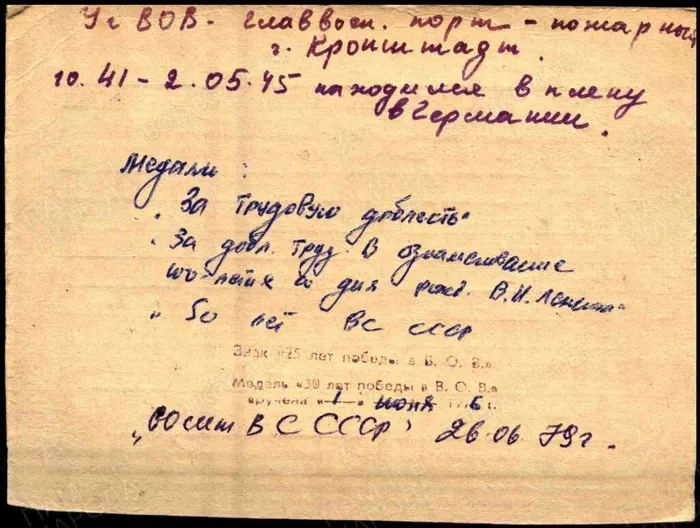 Уч ВОВ - главвоен. порт - пожарный
г. Кронштадт.
10.41 - 2.05.45 находился в плену
в Германии.
Медали:
"За трудовую доблесть"
"За добл. труд. В ознаменование
100-летия со дня рожд. В.И. Ленина"
"50 лет ВС СССР
Знак «25 лет победы в В. О. В.»
Медаль «30 лет победы в В. О. В.»
вручена «1» июня 1976 г.
„60 лет ВС СССР" 26.06.79г.